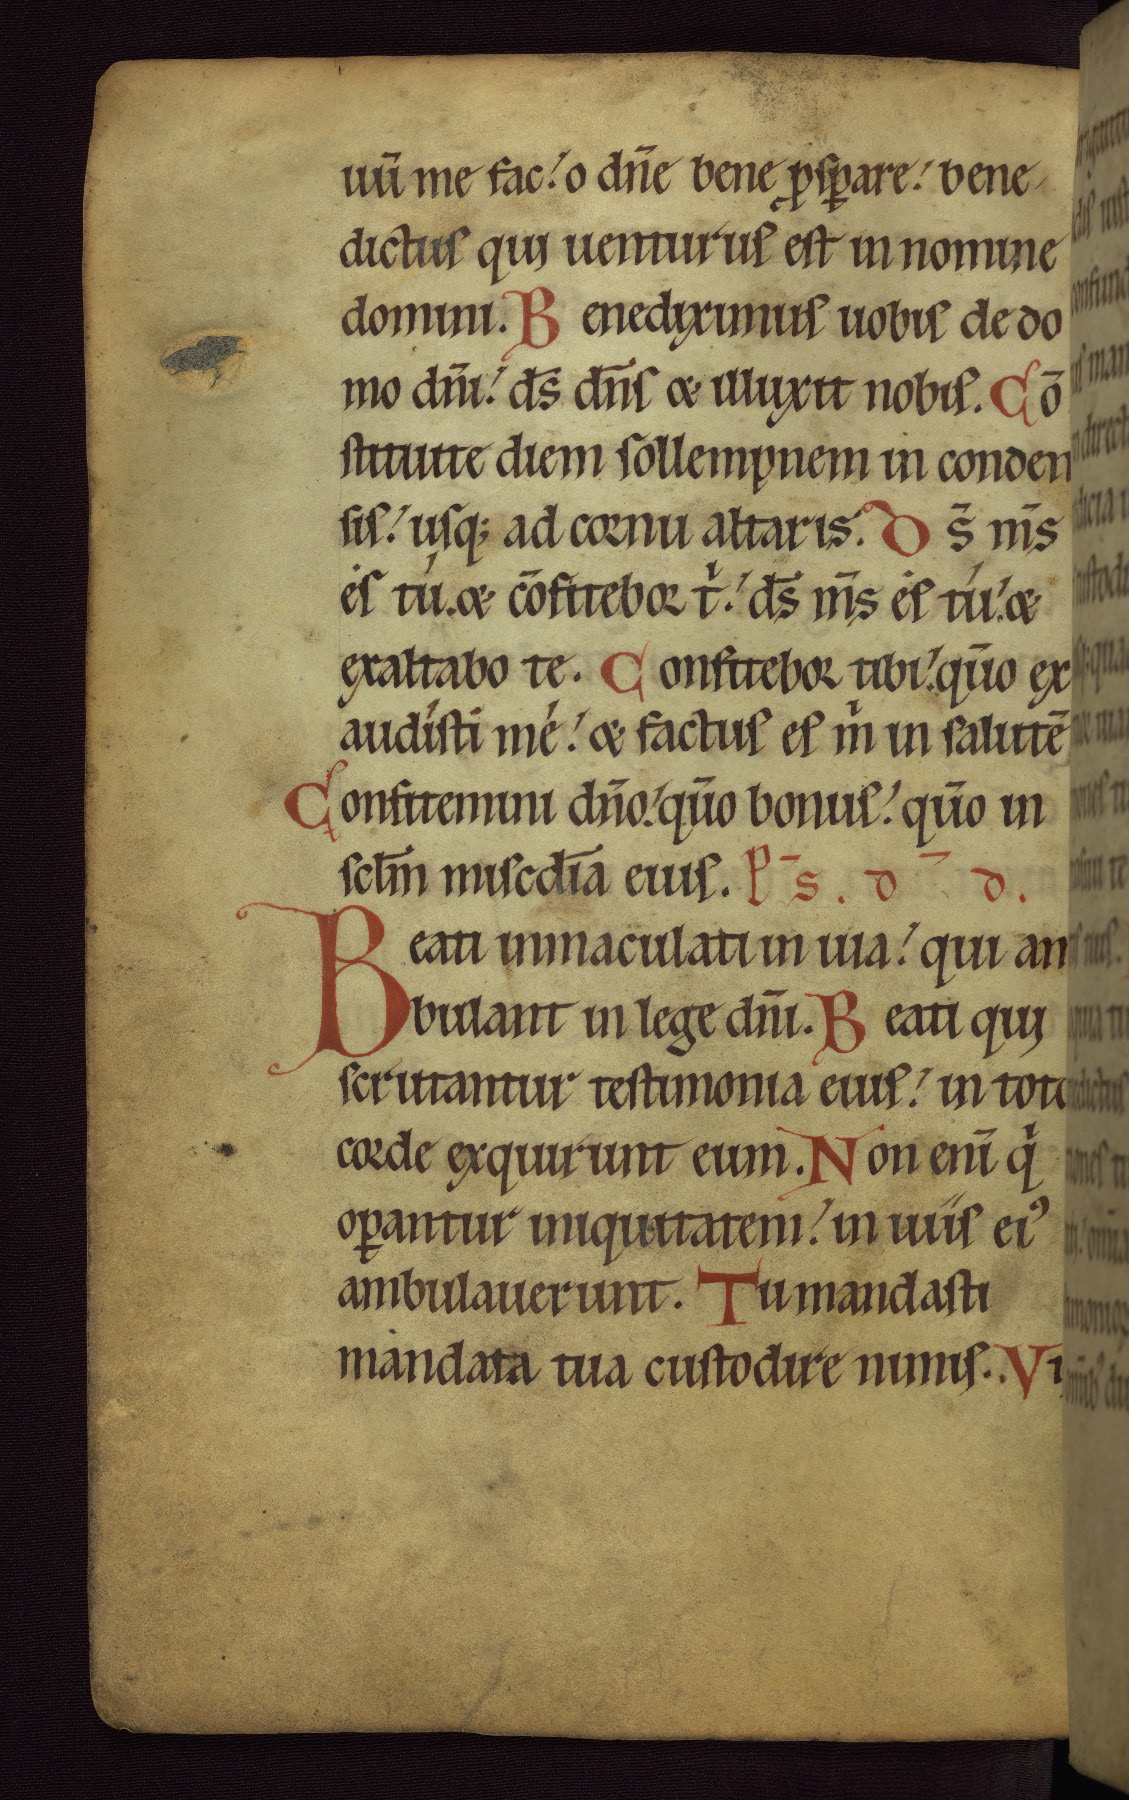 uū me fac! o dn̄e bene ꝓsꝑare! bene
dictus qui uenturus est in nomine
domini. Benediximus uobis de do
mo dn̄i! ds̄ dn̄s & illuxit nobis. Cō
stituite diem sollempnem in conden
sis! usq; ad cornu altaris. Ds̄ ms̄
es tú. & cōfitebor t̍! ds̄ ms̄ es tú! &
exaltabo te. Confitebor tibi! qm̄o ex
audisti mé! & factus es m̍ in salutē
Confitemini dn̄o! qm̄o bonus! qm̄o in
sclm̄ miscdīa eius. Ps̄. d̄ d.
Beati inmaculati in uia! qui am
bulant in lege dn̄i. Beati qui
scrutantur testimonia eius! in toto
corde exquirunt eum. Non enī q̍
oꝑantur iniquitatem! in uiis ei᾽
ambulauerunt. Tu mandasti
mandata tua custodire nimis. Vt